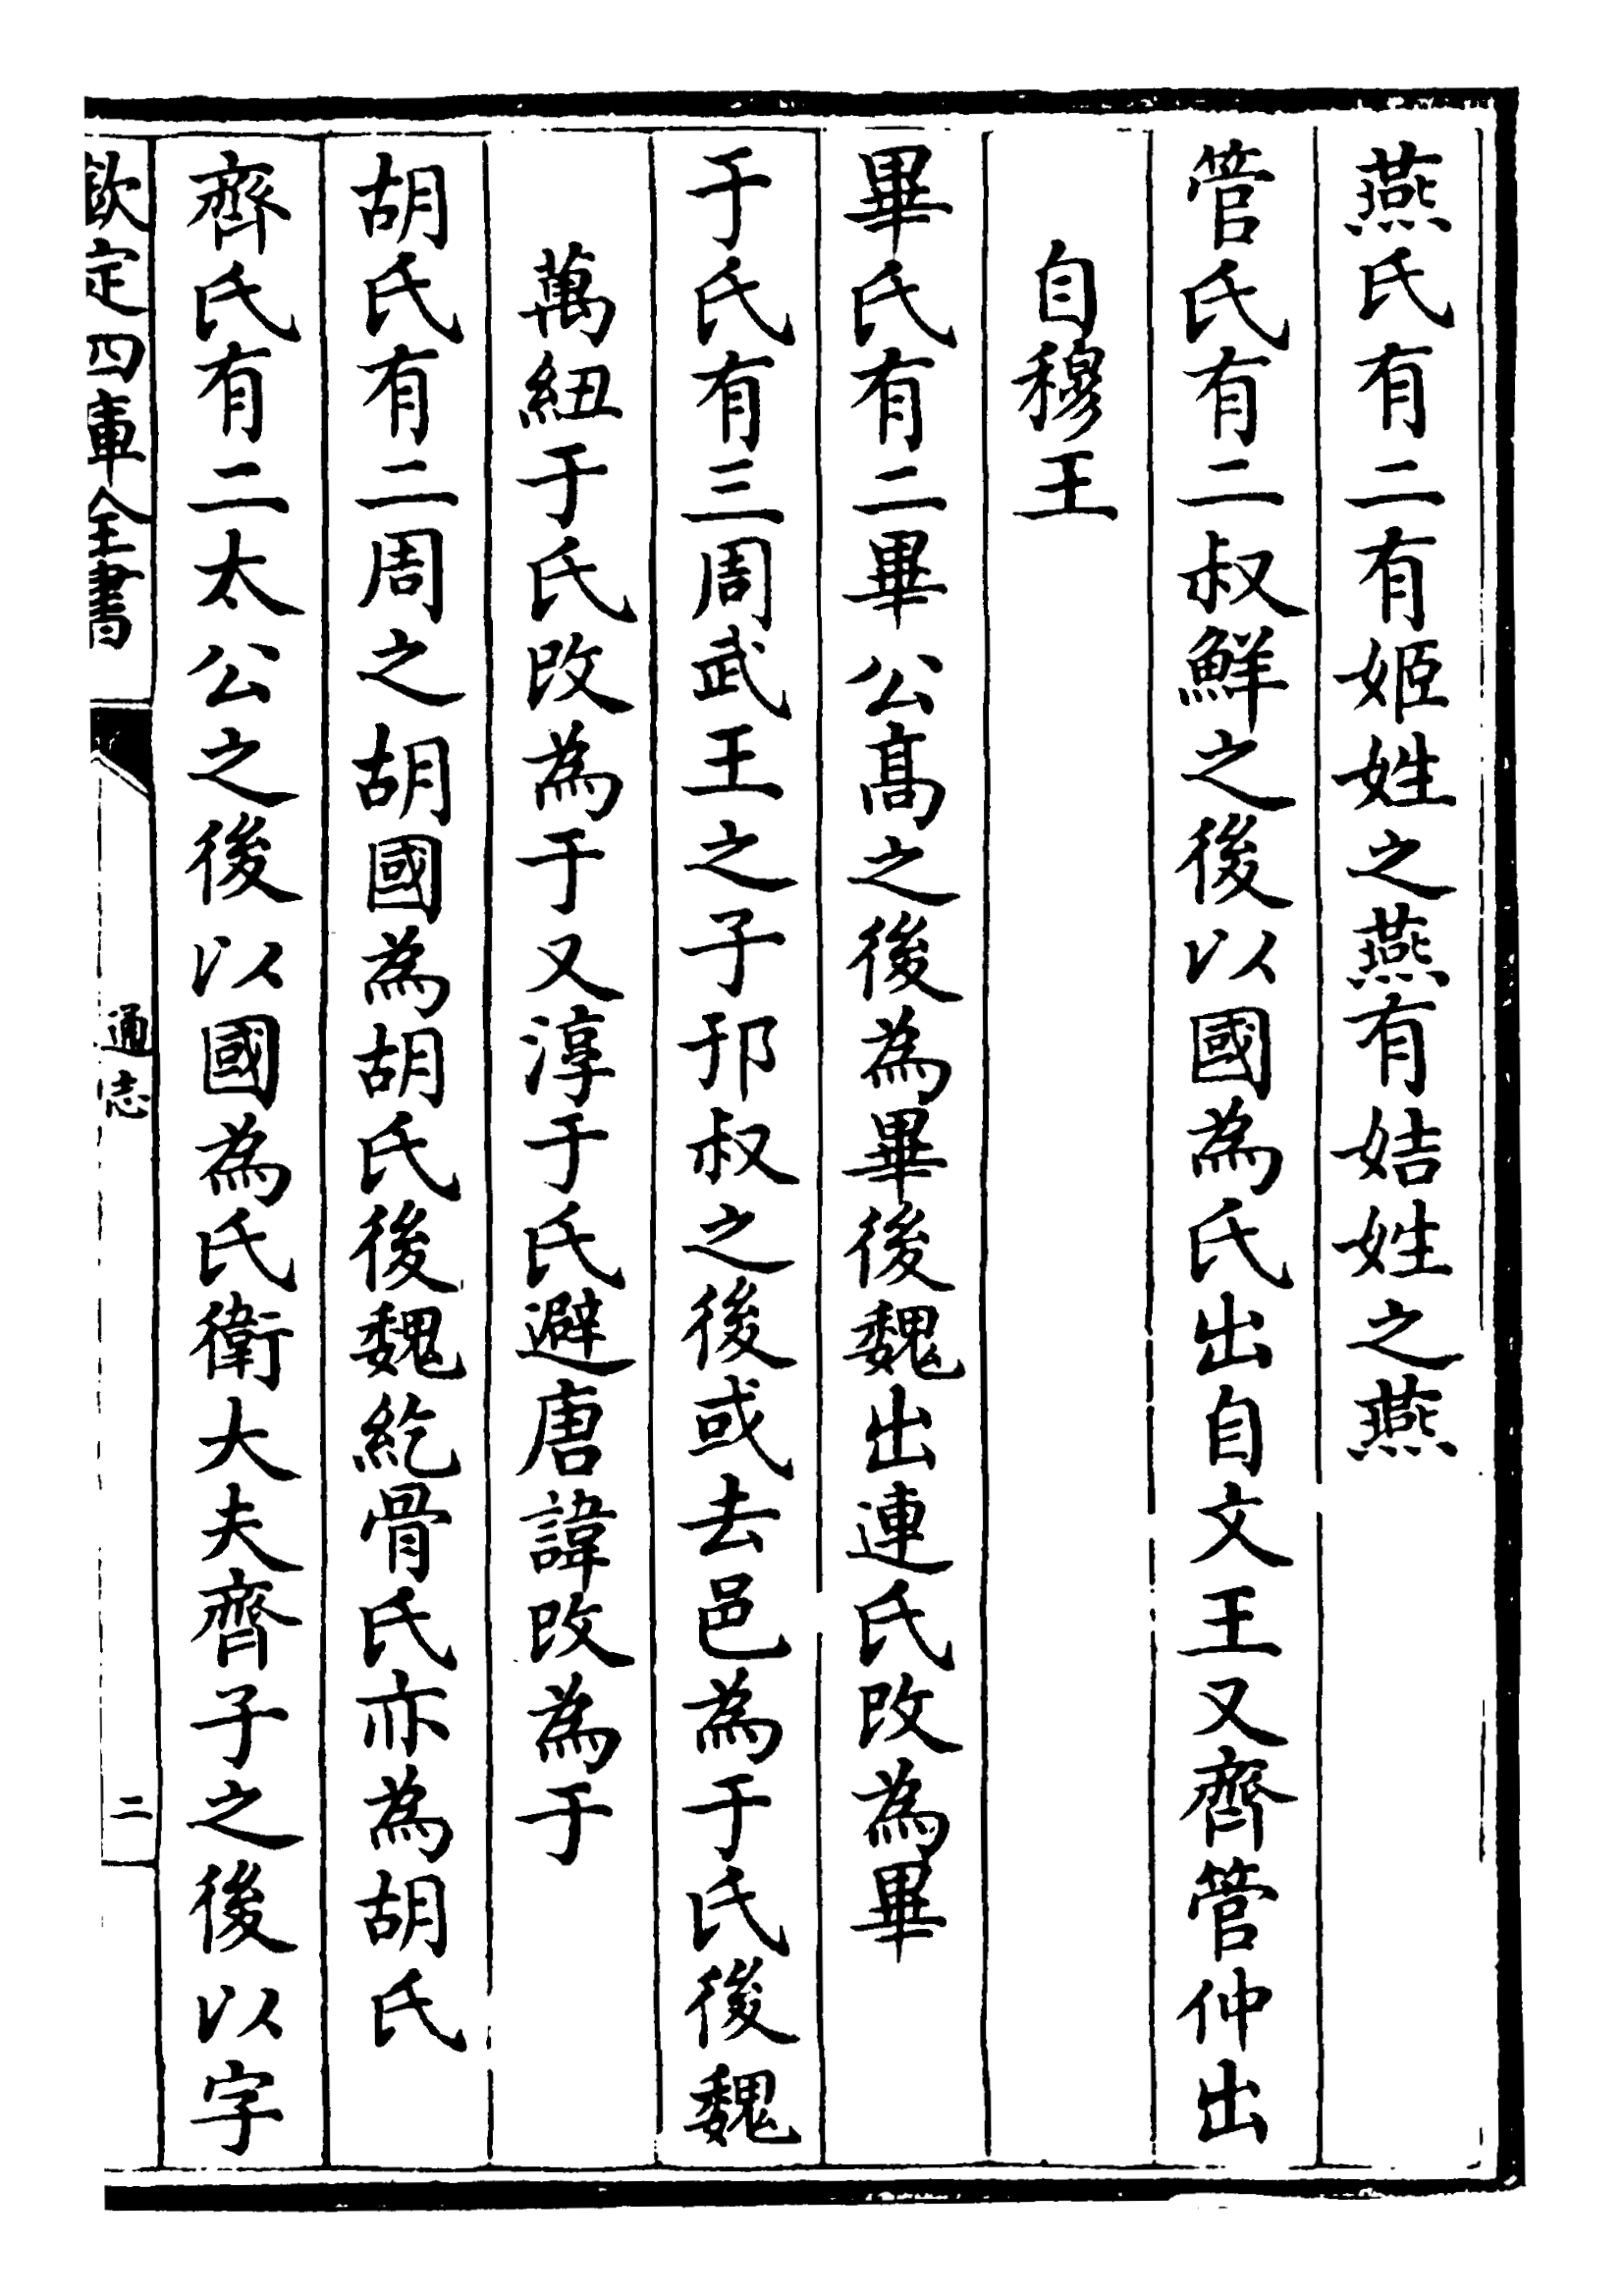 燕氏有二有姬姓之燕有姞姓之燕
管氏有二叔鮮之後以國為氏出自文王又齊管仲出
自穆王
畢氏有二畢公髙之後為畢後魏出連氏改為畢
于氏有三周武王之子邘叔之後或去邑為于氏後魏
萬紐于氏改為于又淳于氏避唐諱改為于
胡氏有二周之胡國為胡氏後魏紇骨氏亦為胡氏
齊氏有二太公之後以國為氏衛大夫齊子之後以字
欽定四庫全書
通志
二